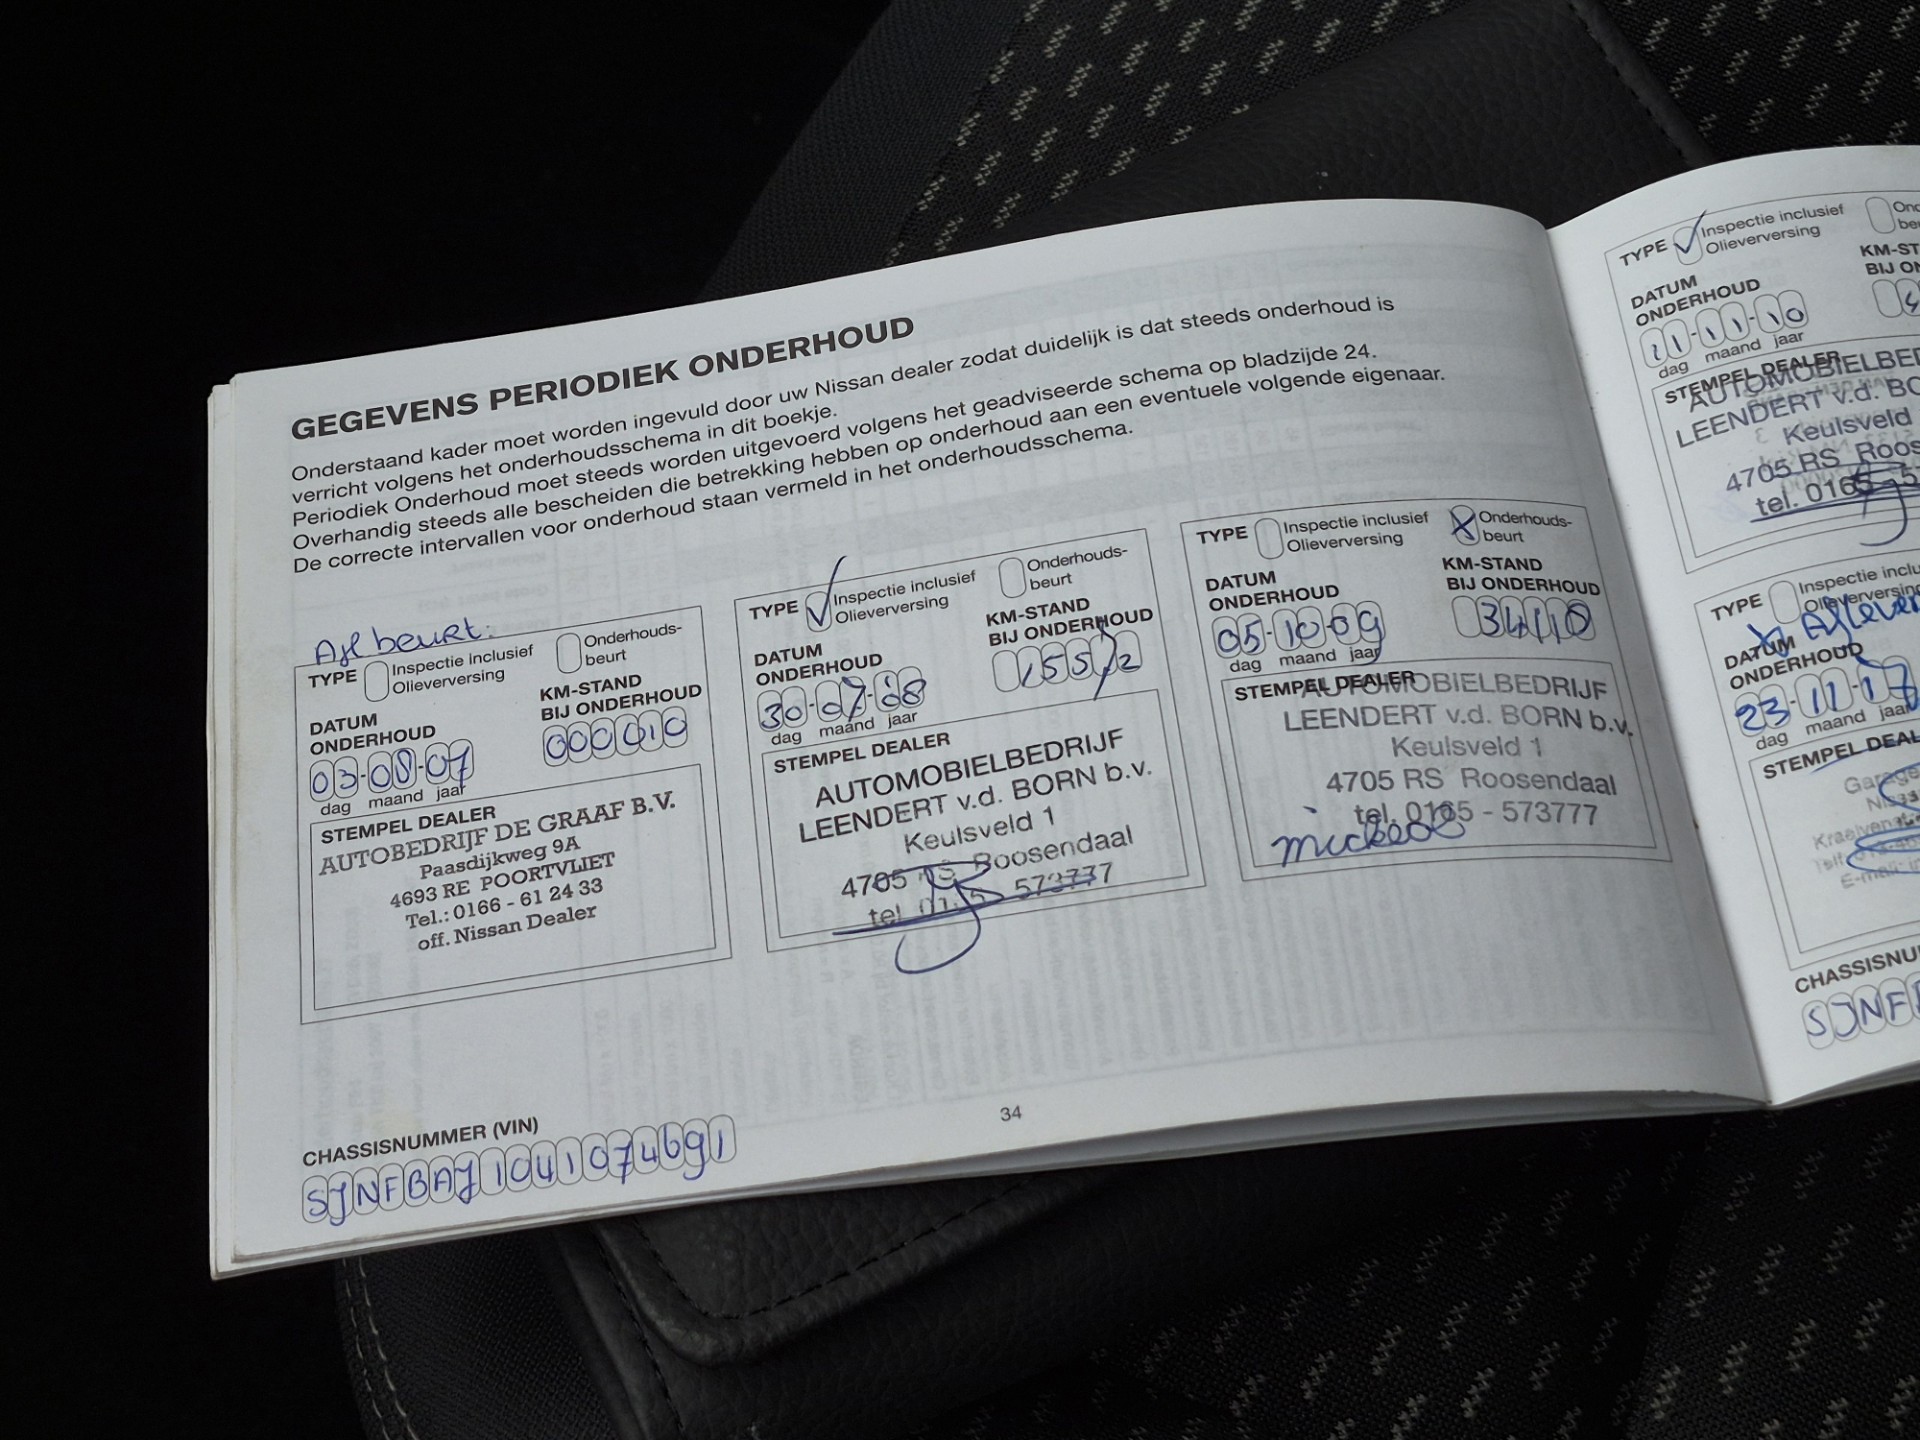 GEGEVENS PERIODIEK ONDERHOUD
Onderstaand kader moet worden ingevuld door uw Nissan dealer zodat duidelijk is dat steeds onderhoud is
verricht volgens het onderhoudsschema in dit boekje.
Periodiek Onderhoud moet steeds worden uitgevoerd volgens het geadviseerde schema op bladzijde 24.
Overhandig steeds alle bescheiden die betrekking hebben op onderhoud aan een eventuele volgende eigenaar.
De correcte intervallen voor onderhoud staan vermeld in het onderhoudsschema.
Afl beurt:
TYPE Inspectie inclusief
Olieverversing
Onderhouds-
beurt
DATUM
ONDERHOUD
KM-STAND
BIJ ONDERHOUD
03-08-07
000010
dag maand jaar
STEMPEL DEALER
AUTOBEDRIJF DE GRAAF B.V.
Paasdijkweg 9A
4693 RE POORTVLIET
Tel.: 0166 - 61 24 33
off. Nissan Dealer
TYPE Inspectie inclusief
Olieverversing
Onderhouds-
beurt
DATUM
ONDERHOUD
KM-STAND
BIJ ONDERHOUD
30-07-08
dag maand jaar
STEMPEL DEALER
AUTOMOBIELBEDRIJF
LEENDERT v.d. BORN b.v.
Keulsveld 1
4705 RS Roosendaal
tel. 0165 - 573777
TYPE Inspectie inclusief
Olieverversing
Onderhouds-
beurt
DATUM
ONDERHOUD
KM-STAND
BIJ ONDERHOUD
05-10-09
34110
dag maand jaar
STEMPEL DEALER
AUTOMOBIELBEDRIJF
LEENDERT v.d. BORN b.v.
Keulsveld 1
4705 RS Roosendaal
tel. 0165 - 573777
CHASSISNUMMER (VIN)
SJNFBAJ10U1074691
34
TYPE Inspectie inclusief
Olieverversing
DATUM
ONDERHOUD
KM-ST
BIJ ON
11-10
dag maand jaar
STEMPEL DEALER
AUTOMOBIELBED
LEENDERT v.d. BO
Keulsveld
4705 RS Roos
tel. 0165 - 5
TYPE Inspectie inclu
Olieverversing
DATUM
ONDERHOUD
23-11-17
dag maand jaar
STEMPEL DEAL
Garage
CHASSISNU
SJNF